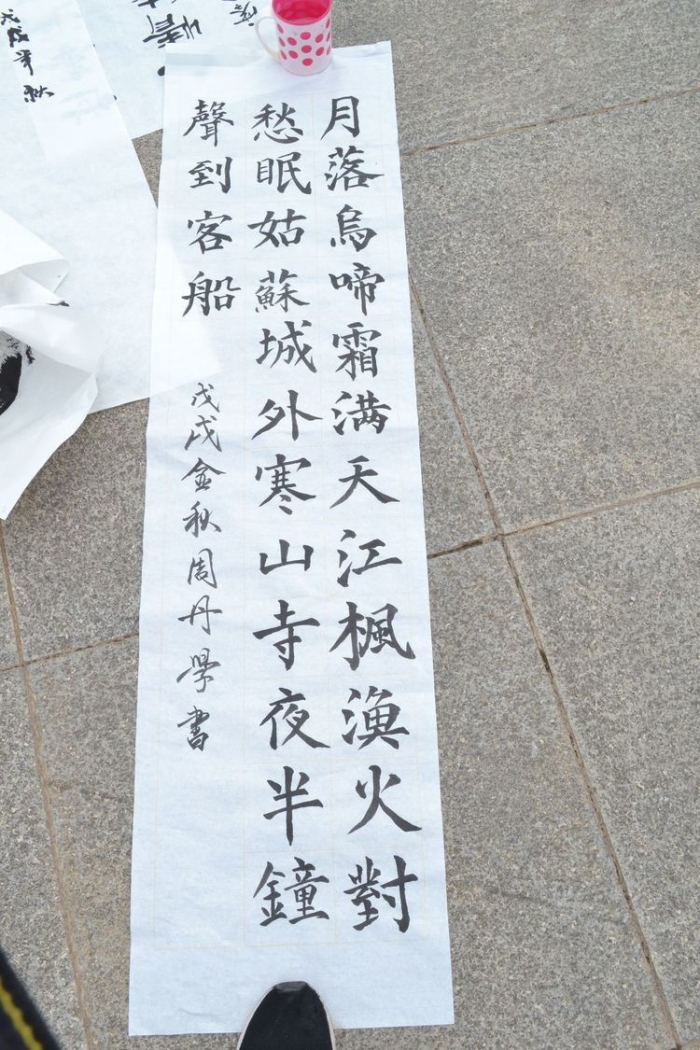 月落烏啼霜满天江楓漁火對
愁眠姑蘇城外寒山寺夜半鐘
聲到客船
戊戌金秋周丹學書
戊戌年秋